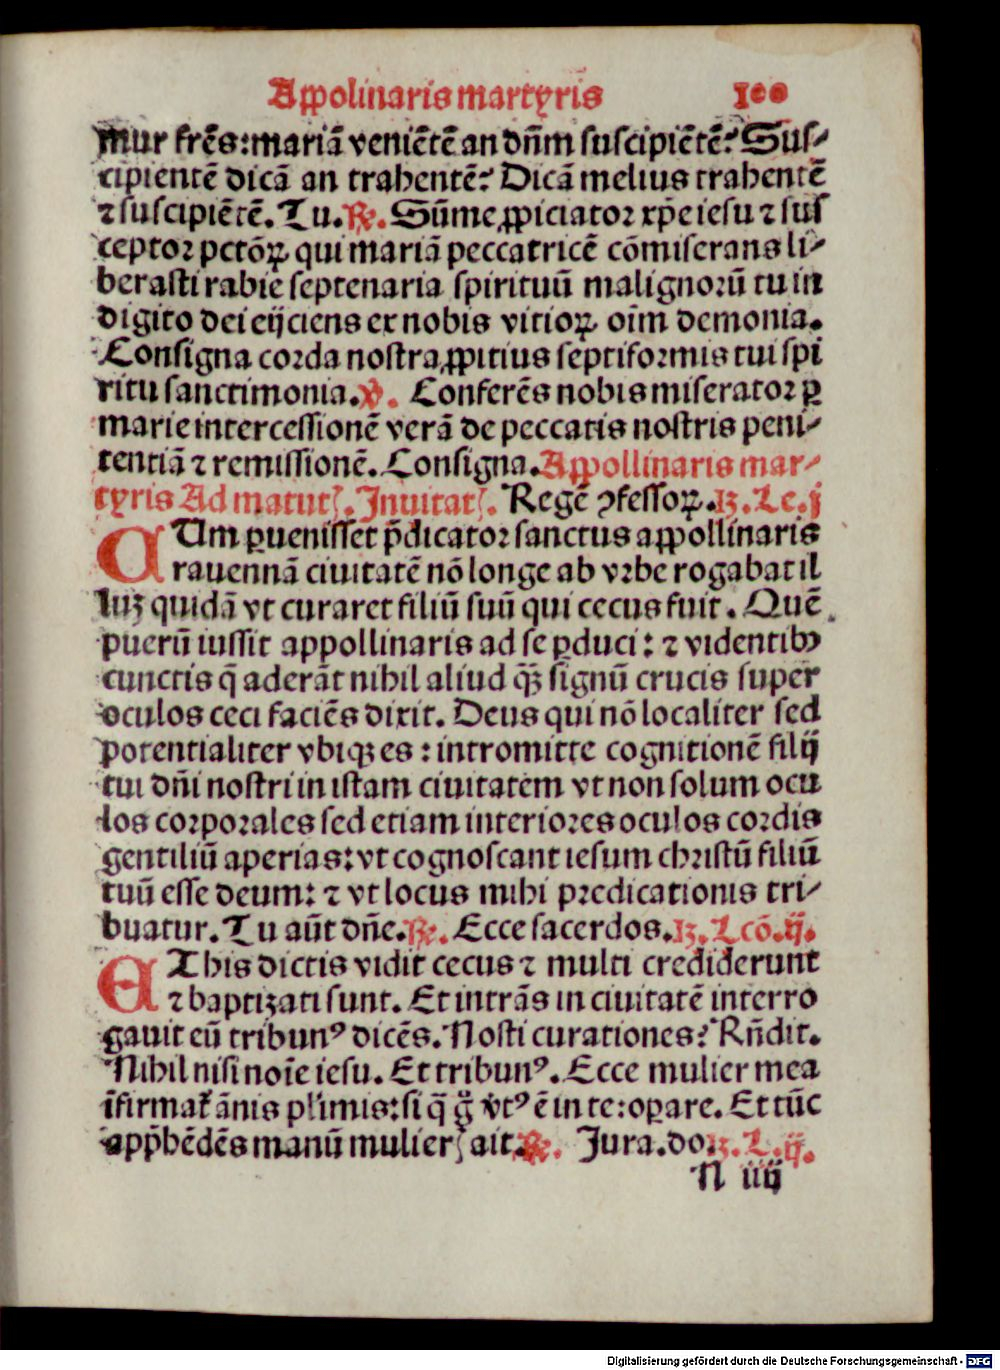 Appolinaris martyris 100
mur frēs: mariā veniētē an dn̄m suscipiētē? Sus⸗
cipientē dicā an trahentē? Dicā melius trahentē
⁊ suscipiētē. Tu. ℞. Sūme ꝓpiciator xp̄e iesu ⁊ sus
ceptor pctōꝝ qui mariā peccatricē cōmiserans li⸗
berasti rabie septenaria spirituū malignorū tu in
digito dei eijciens ex nobis vitioꝝ oīm demonia.
Consigna corda nostra ꝓpitius septiformis tui spi
ritu sanctimonia. ℣. Conferēs nobis miserator ꝑ
marie intercessionē verā de peccatis nostris peni⸗
tentiā ⁊ remissionē. Consigna. Appollinaris mar⸗
tyris Ad matutꝭ. Inuitatꝭ. Regē ꝯfessoꝝ. ꝫ. Le. j
CUm ꝑuenisset p̄dicator sanctus aꝓpollinaris
rauennā ciuitatē nō longe ab vrbe rogabat il
luꝫ quidā vt curaret filiū suū qui cecus fuit. Quē
puerū iussit appollinaris ad se ꝑduci: ⁊ videntibꝰ
cunctis q̄ aderāt nihil aliud qꝫ̄ signū crucis super
oculos ceci faciēs dixit. Deus qui nō localiter sed
potentialiter vbiqꝫ es: intromitte cognitionē filij
tui dn̄i nostri in istam ciuitatem vt non solum ocu
los corporales sed etiam interiores oculos cordis
gentiliū aperias: vt cognoscant iesum christū filiū
tuū esse deum: ⁊ vt locus mihi predicationis tri⸗
buatur. Tu aūt dn̄e. ℞. Ecce sacerdos. ꝫ. Lcō. ij.
ET his dictis vidit cecus ⁊ multi crediderunt
⁊ baptizati sunt. Et intrās in ciuitatē interro
gauit eū tribunꝰ dicēs. Nosti curationes? Rn̄dit.
Nihil nisi noīe iesu. Et tribunꝰ. Ecce mulier mea
īfirmat̄ ānis pl'imis: si q̄ g̊ v̄tꝰ ē in te: oꝑare. Et tūc
app̄hēdēs manū mulierꝭ ait. ℞. Jura. do. ꝫ. L. ij.
N iiij
Digitalisierung gefördert durch die Deutsche Forschungsgemeinschaft - DFG